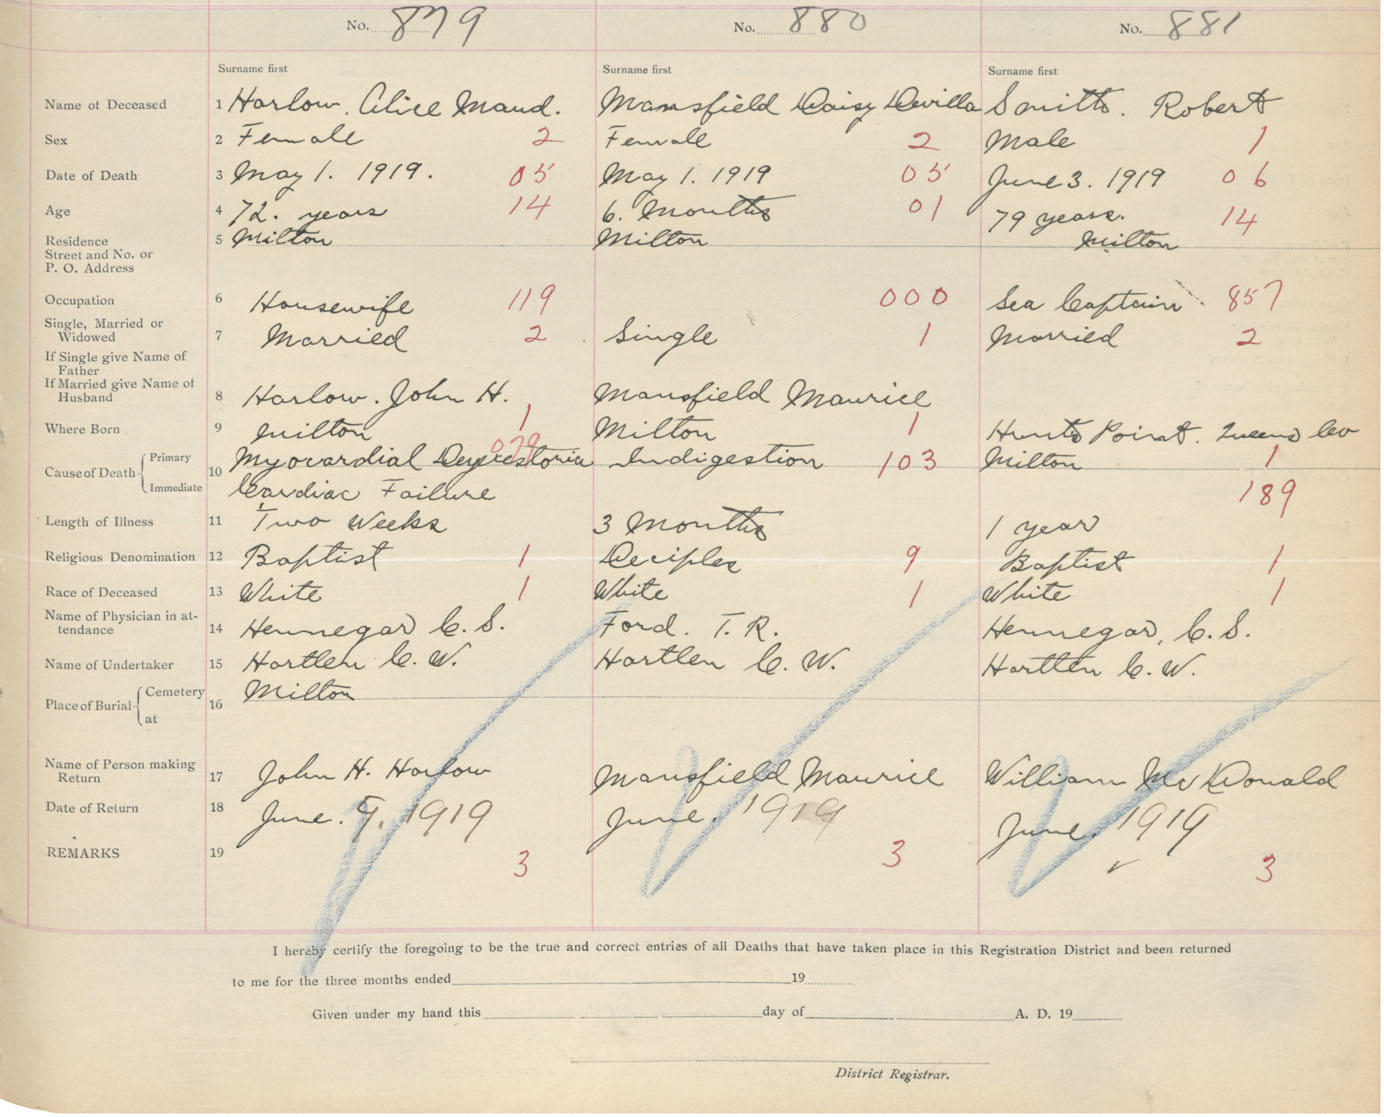 No. 879 No. 880 No. 881
Surname first Surname first Surname first
Name of Deceased 1 Harlow. Alice Maud. Mansfield Daisy Devilla Smith. Robert
Sex 2 Female 2 Female 2 Male 1
Date of Death 3 May 1. 1919. 05 May 1. 1919 05 June 3. 1919 06
Age 4 72. years 14 6. Months 01 79 years. 14
Residence 5 Milton Milton Milton
Street and No. or
P. O. Address
Occupation 6 Housewife 119 000 Sea Captain 857
Single, Married or
Widowed 7 Married 2 Single 1 Married 2
If Single give Name of
Father
If Married give Name of
Husband 8 Harlow. John H. Mansfield Maurice
Where Born 9 Milton 1 Milton 1 Hunts Point. Queens Co
079
Cause of Death Primary 10 Myocardial Indigestion 103 Milton 1
Immediate Cardiac Failure 189
Length of Illness 11 Two Weeks 3 Months 1 year
Religious Denomination 12 Baptist 1 Deciples 9 Baptist 1
Race of Deceased 13 White 1 White 1 White 1
Name of Physician in at-
tendance 14 Hennegar C. S. Ford. T. R. Hennegar, C. S.
Name of Undertaker 15 Hartlen C. W. Hartlen C. W. Hartlen C. W.
Place of Burial Cemetery 16 Milton
at
Name of Person making
Return 17 John H. Harlow Mansfield Maurice William McDonald
Date of Return 18 June. 9, 1919 June. 1919 June, 1919
REMARKS 19 3 3 3
I hereby certify the foregoing to be the true and correct entries of all Deaths that have taken place in this Registration District and been returned
to me for the three months ended 19
Given under my hand this day of A. D. 19
District Registrar.